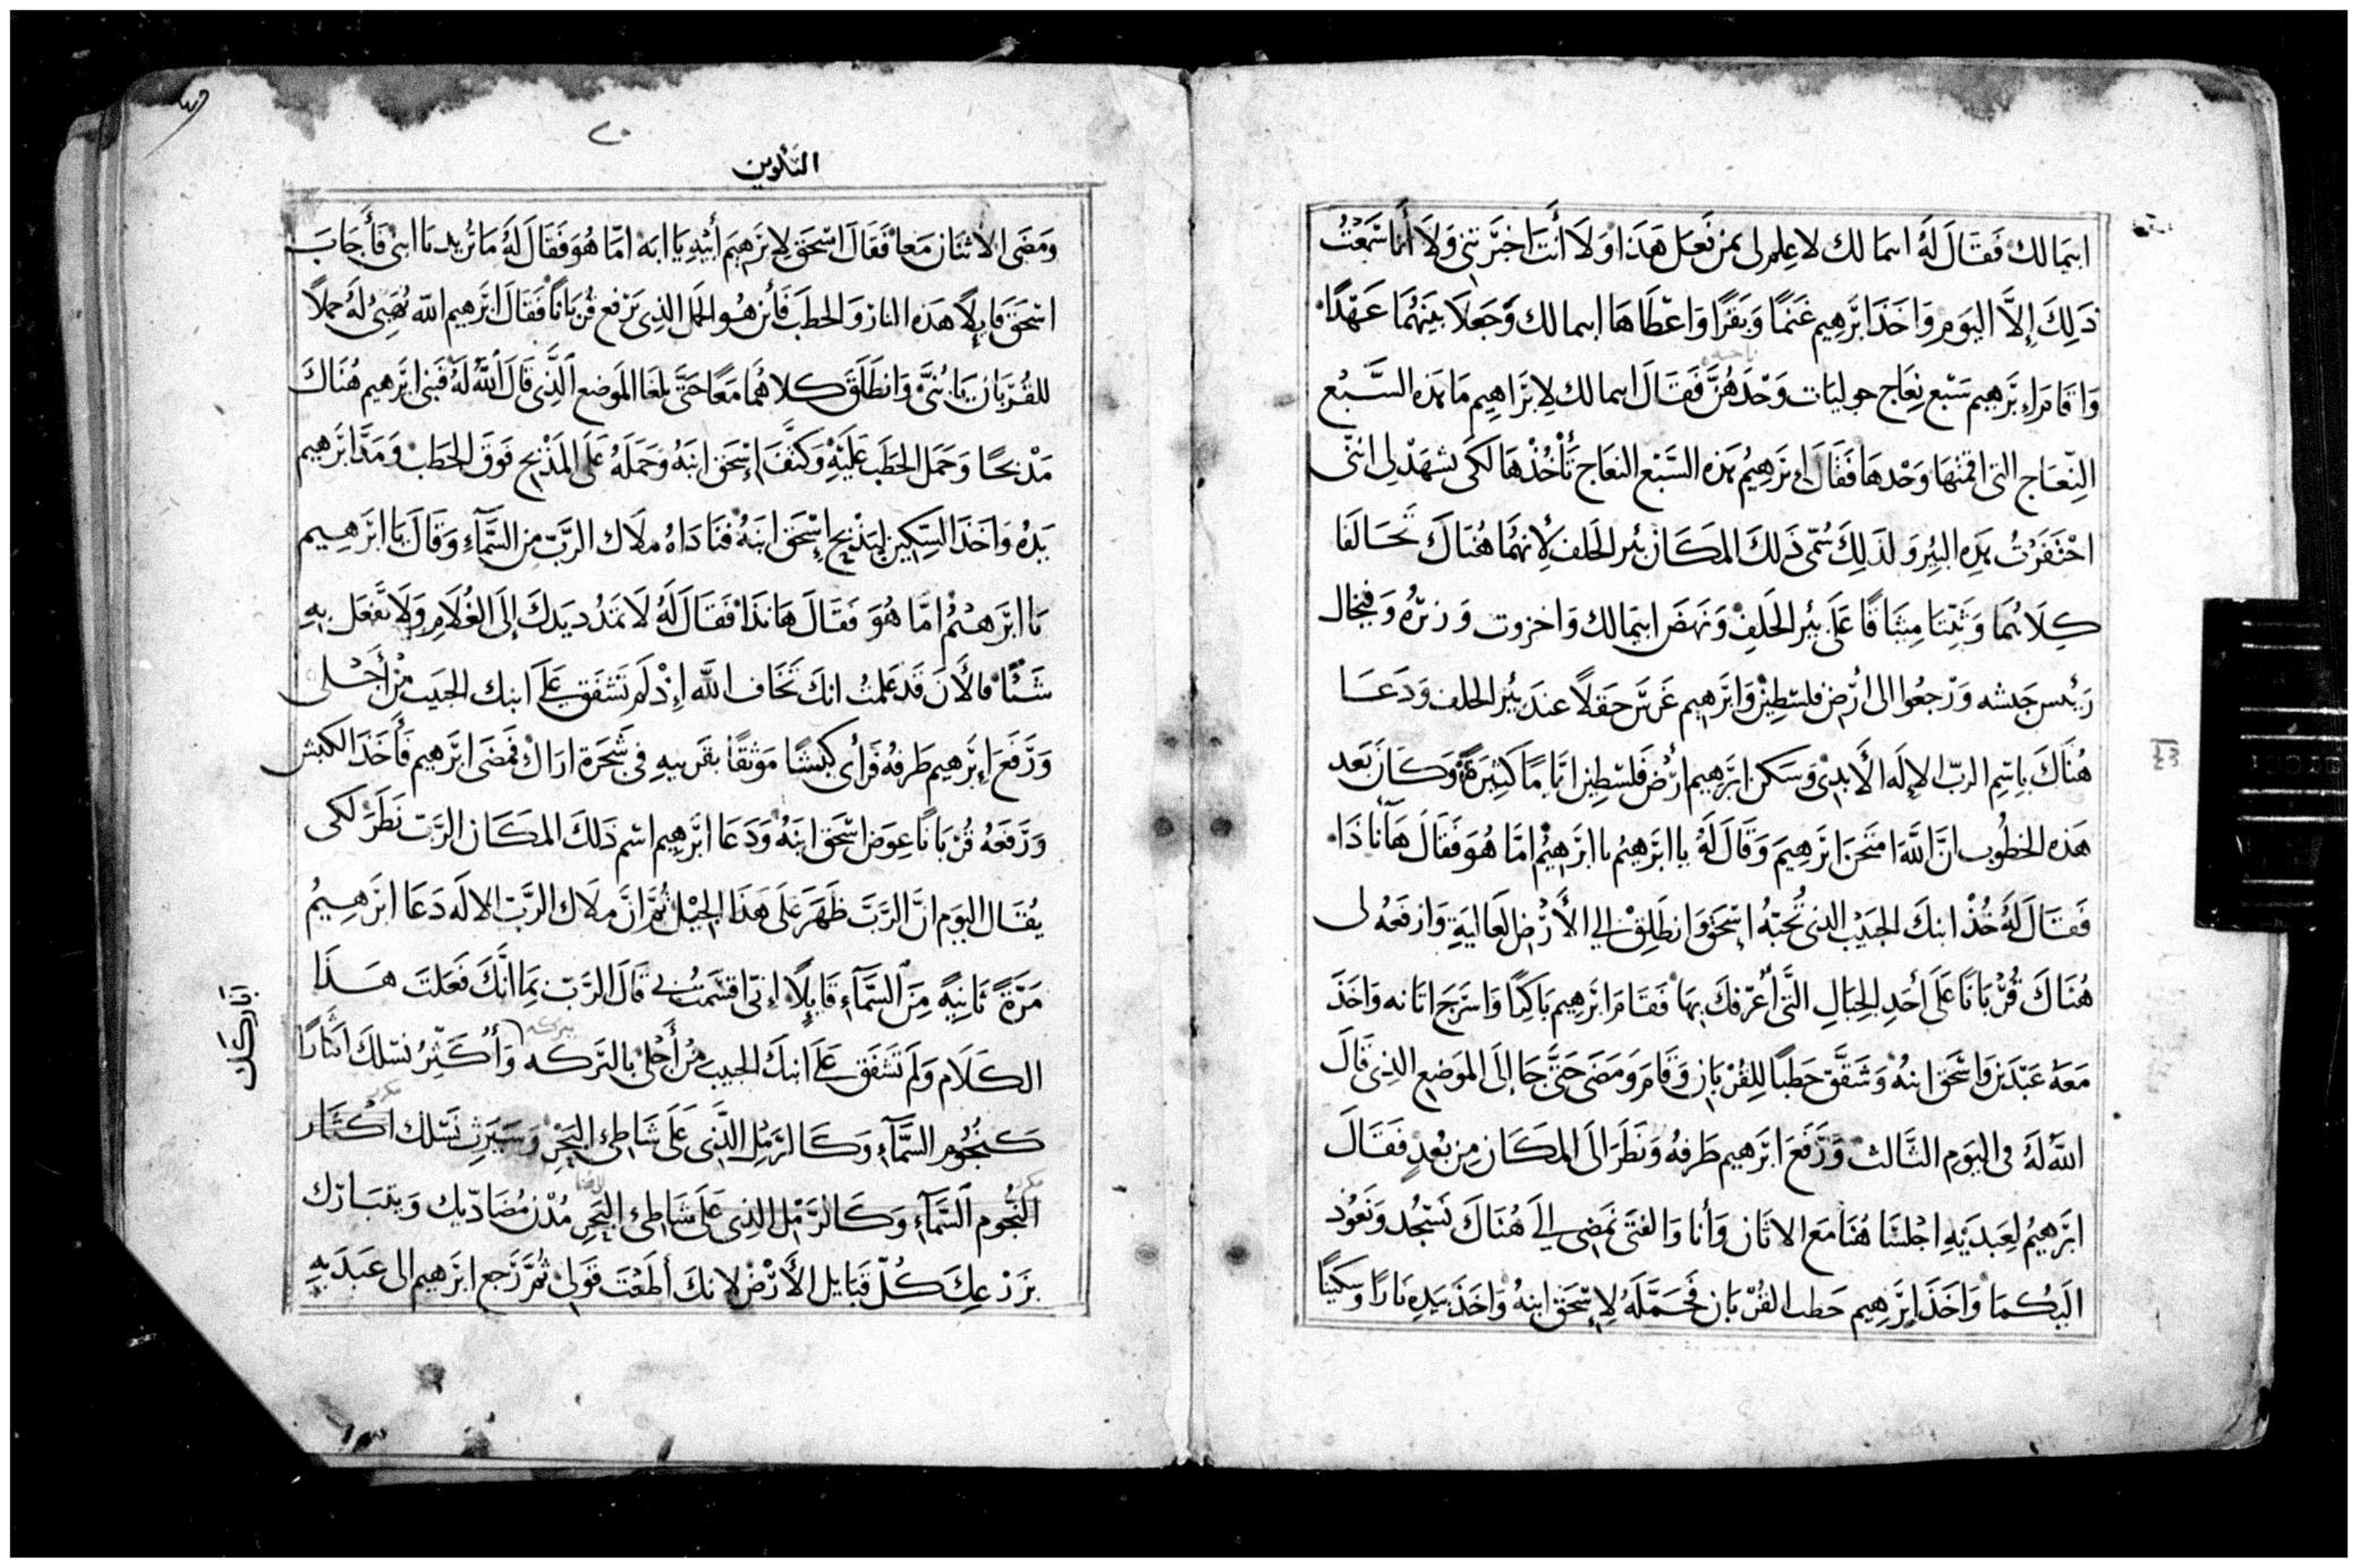 ابيمالك فَقَالَ لَهُ ابيمالك لا عِلم لى بمَن فَعَل هَذَا وَلَا أَنتَ اخبَرتَنِى وَلَا أَنا سَمِعْتُ
ذَلِكَ إِلاَّ اليَومِ وَاخَذَ ابرَّهِيم غَنَمًا وَبَقَرًا وَاعْطَاهَا ابيمالك وَجَعَلَا بَينَهُمَا عَهْدًا
وَاقَامَ ابرَّهِيم سَبْع نِعَاج حوليَات وَحْدَهُنَّ فَقَالَ ابيمالك لِابرَاهِيم مَا هَذِه السَّبْع
النِّعَاج التى اقمتهَا وَحْدهَا فَقَالَ ابرَهِيمُ هَذِه السَّبْع النعَاج تَأْخُذْهَا لكَى تشهَدْ لى انّنى
احْتَفَرْتُ هَذِه البِيروَ لذَلِكَ سُمّى ذَلكَ المَكَان بئر الحَلف لأَِنهُمَا هُنَاكَ تَحَالَفَا
كِلَاهُمَا وَثبّتَا مِيثَاقًا عَلَى بئِر الحَلفِ وَنَهَضَ ابيمالك وَاخزوت وَزيْرُه وَفيخال
رَئِيس جَيشه وَرْجعُوا الى أرْض فلسْطِيْن وَابرَّهِيم غَرسَ حَقلًا عندَ بئِر الحلف وَدَعَا
هُنَاكَ بِاسْم الربّ الإلَه الأَبدِىْ وَسَكن ابرَّهِيم أرْض فَلسْطِين ايَّامًا كَثِيرَةً وَكَان بَعد
هَذه الخطُوب انَّ اللَّهَ امتَحَنَ ابرَهِيمَ وَقَالَ لَهُ يا ابرَّهِيمُ يا ابرَهِيْمُ امَّا هُوَ فَقَالَ هَأَنا ذَا
فَقَالَ لَهُ خُذْ ابنكَ الحَبيْب الذى تُحبّهُ إسْحَق وَانطَلِقْ إلى الأرْض العَاليَةِ وَارفعَهُ لى
هُنَاكَ قُرْبَانًا عَلَى أَحَدِ الجِبَالِ الَّتى أُعَرّفكَ بهَا فَقَامَ ابرَهِيم بَاكِرًا وَاسْرَج اتَانه وَاخَذَ
مَعَهُ عَبْدَيْن وَاسْحَق ابنهُ وَشَقَّق حَطبًا لِلقُرْبَان وَقَامَ وَمَضَى حَتَّى جَا إلَى المَوضِع الذِى قَالَ
اللَّهُ لَهُ فى اليَوم الثَّالث وَرَفَعَ ابرَهِيم طَرفهُ وَنَظَرَ الَى المَكَان مِن بُعْدٍ فَقَالَ
ابرَّهِيمُ لِعَبدَيْهِ اجْلسَا هُنَا مَعَ الاتَان وَأَنا وَالفتَى نَمضِى إلَى هُنَاكَ نَسْجُد وَنَعُوْد
الَيكُمَا وَاخَذَ إبرَهِيم حَطب القُرْبَان فَحَمَّلَهُ لِإسْحَق ابنهُ وَاخَذَ بيَدِه نَارًا وَسِكينًا
٢٠
التكوين
وَمَضَى الاثنَان مَعا فَقَالَ اسْحَق لِابرَهِيمَ أَبيْهِ يَا ابَه امّا هُوَ فَقَالَ لَهُ مَا تُريد يَا ابنى فَأَجَابَ
اسْحَق قَايلًا هَذه النار وَالحَطَب فَأين هُو الحَمل الذِى يَرْفع قُربَانًا فَقَالَ ابرَّهِيم اللّه يُهَيِىُ لَهُ حملًا
للقُرْبَان يَا بُنىَّ وَانطَلَقَ كلاهُمَا مَعًا حَتَّى بلغَا المَوضع الَّذِى قَالَ اللَّهُ لَهُ فَبنى ابرَّهِيم هُنَاكَ
مَذبحًا وَحَمَل الحَطَب عَلَيْهِ وَكَتَّفَ إسْحَق ابنَهُ وَحَمَلَهُ عَلَى المَذبَح فَوقَ الحَطَب وَمَدَّ ابرَّهِيم
يَدَهُ وَاخَذَ السّكيْن لِيَذْبح إسْحَق ابنَهُ فنَادَاهُ ملَاك الربّ مِن السَّمَآءِ وَقَالَ يَا ابرَهِيم
يَا ابرَهِيْمُ امَّا هُوَ فَقَالَ هَا نَذَا فَقَالَ لَهُ لَا تَمدُد يَدكَ إلَى الغُلَامِ وَلَا تَفعَل بهِ
شَيْئًا فالأَنَ قَد عَلمتُ انكَ تخَاف اللَّه إذْ لَم تَشْفَق عَلَى ابنك الحَبيَب مِنْ أَجْلى
وَرَّفَعَ إبرَّهِيم طَرفهُ فَرأى كبْشًا مَوْثقًا بقَرنيهِ فى شَجَرة ارَاك فمَضَى ابرَّهِيم فَأَخَذَ الكبش
وَرَّفَعَهُ قُرْبَانًا عِوَض اسْحَق ابنَهُ وَدَعَا ابرَّهِيم اسْم ذَلكَ المَكَان الرّبّ نَظَرَ لكى
يُقَال اليوَم انَّ الرَّبَّ ظَهَرَ عَلَى هَذَا الجَبْل ثُمَّ انَّ ملَاك الربّ الالَه دَعَا ابرَهِيمُ
مَرّةً ثَانيةً مِنَ السَّمَآءِ قَايلًا إنى اقسَمتُ بى قَالَ الرَّبّ بِمَا انَّكَ فَعَلتَ هَذَا
الكَلَام وَلَم تَشْفَق عَلَى ابنكَ الحبيب مِنْ أَجْلى بالبَرَكه وَأُكَثّرُ نسْلكَ اكثَارًا
كَنجُوم السَّمَآءِ وَكَالرَّمْل الَّذِى عَلَى شَاطِئ البَحْر وَسَيَرِث نَسْلك اكْثَار
النُّجُوم السَّمَآءِ وَكَالرَّمْل الذِى عَلَى شَاطِئ البَحر مُدْن مُضَادّيك وَيتبَارَك
بزَرْعِكَ كُلّ قَبَايل الأَرْض لانكَ أَطَعْتَ قَولى ثُمَّ رَجع ابرَهِيم الى عَبدَيهِ
أباركك